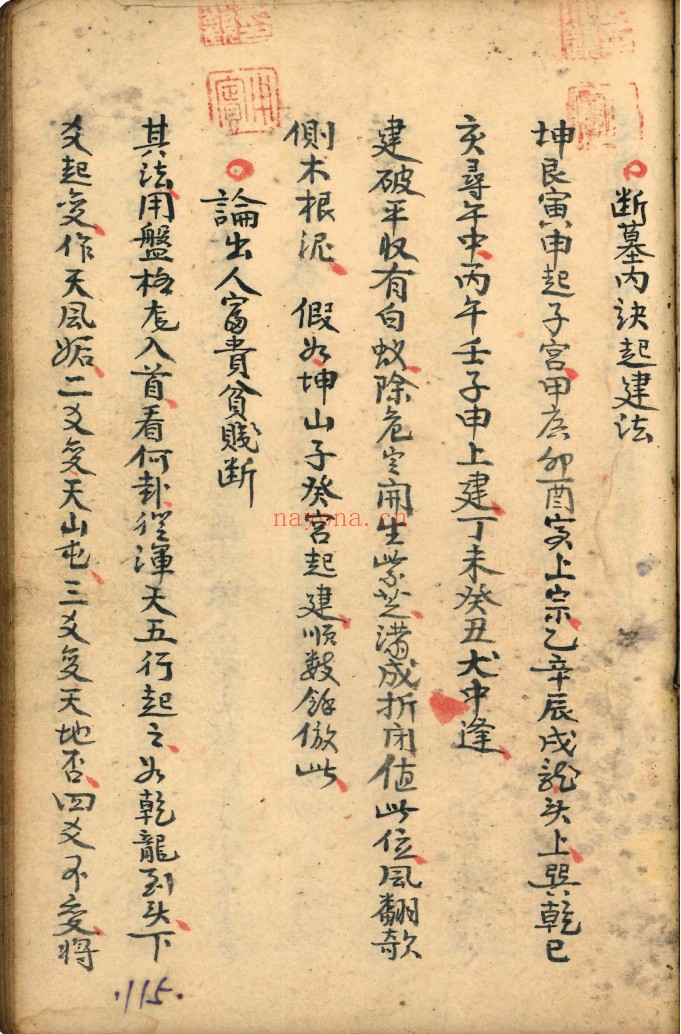 断墓内訣起建法
坤艮寅申起子宫甲庚卯酉寅上宗乙辛辰戌龍头上巽乾巳
亥尋午中丙午壬子申上建丁未癸丑犬中逢
建破平收有白蚁除危定開生紫芝满成折闭值此位風翻欹
侧木根泥 假如坤山子癸宫起建順数餘倣此
論出人富貴貧賤断
其法用盤格龙入首看何卦從渾天五行起之如乾龍到头下
爻起变作天風姤二爻变天山屯三爻变天地否四爻不变将
nayona.cn
115